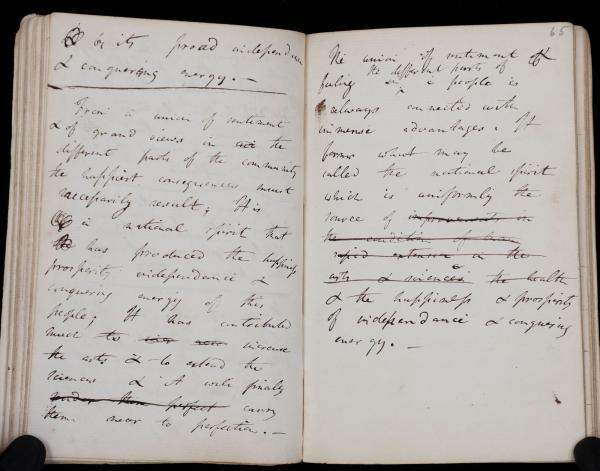 by its proud independence
& conquering energy. —
From a union of sentiment
& of grand views in the
different parts of the community
the happiest consequences must
necessarily result; It is
in national spirit that
has produced the happiness
prosperity independance &
conquering energy of this
people; It has contributed
much to increase
the arts & to extend the
sciences & it will finally
render them perfect carry
them near to perfection. —
65
The union of sentiment &
feeling in the different parts of a people is
always connected with
immense advantages. It
forms what may be
called the national spirit
which is uniformly the
source of improvements in
the condition of
rapid extension in the
arts & sciences the health
& the happiness & prosperity
of independance & conquering
energy. —